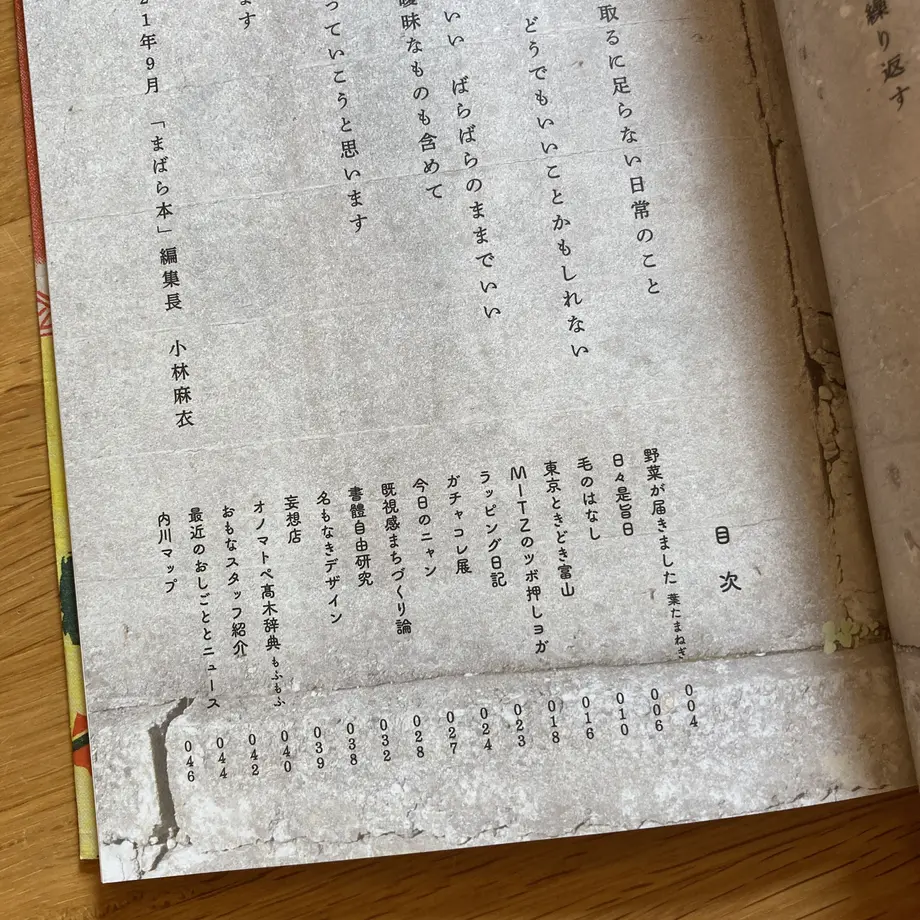 繰り返す
取るに足らない日常のこと
どうでもいいことかもしれない
いい ばらばらのままでいい
曖昧なものも含めて
っていこうと思います
ます
21年9月 「まばら本」編集長 小林麻衣
目次
野菜が届きました 葉たまねぎ 004
日々是旨日 006
毛のはなし 010
東京ときどき富山 016
MITZのツボ押しヨガ 018
ラッピング日記 023
ガチャコレ展 024
今日のニャン 027
既視感まちづくり論 028
書體自由研究 032
名もなきデザイン 038
妄想店 039
オノマトペ髙木辞典 もふもふ 040
おもなスタッフ紹介 042
最近のおしごととニュース 044
内川マップ 046